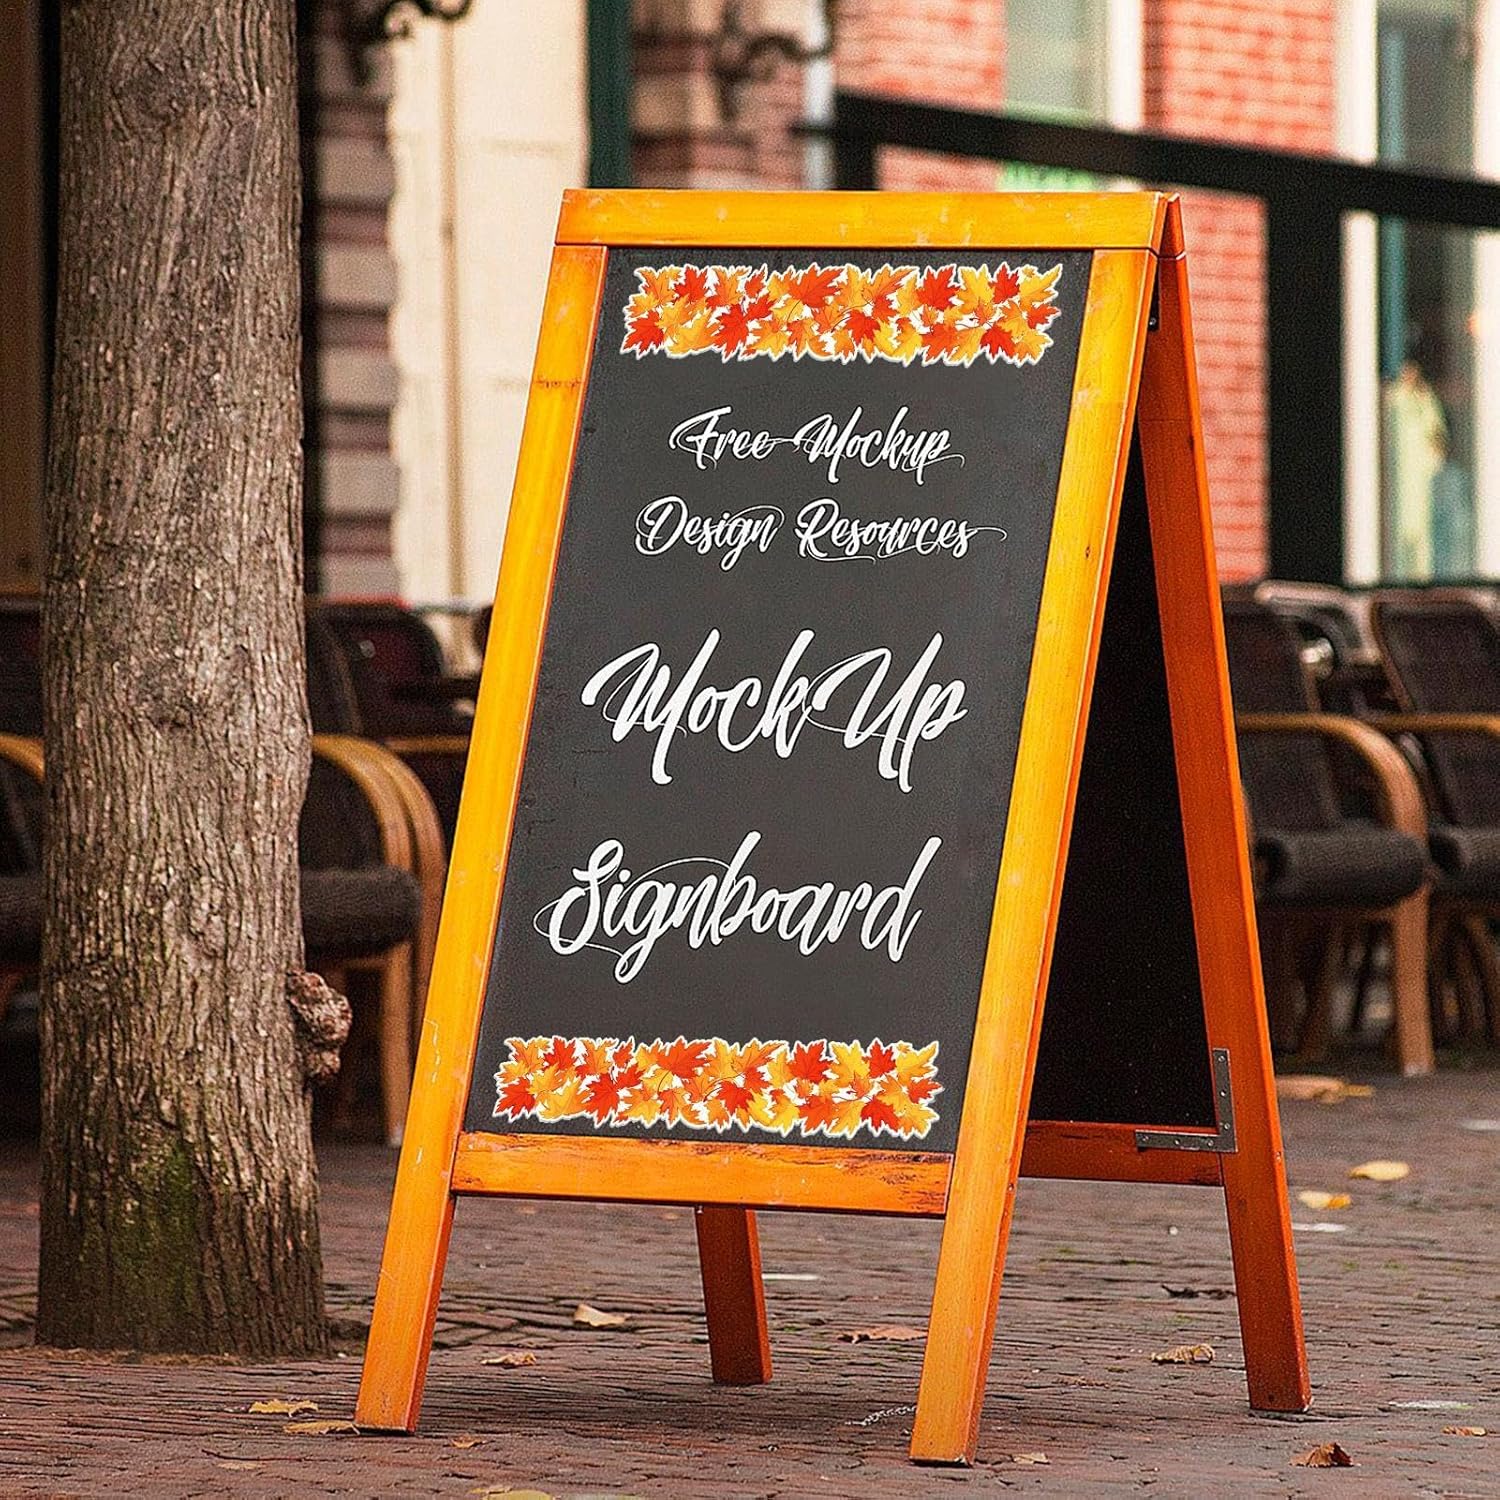 Free Mockup
Design Resources
MockUp
Signboard